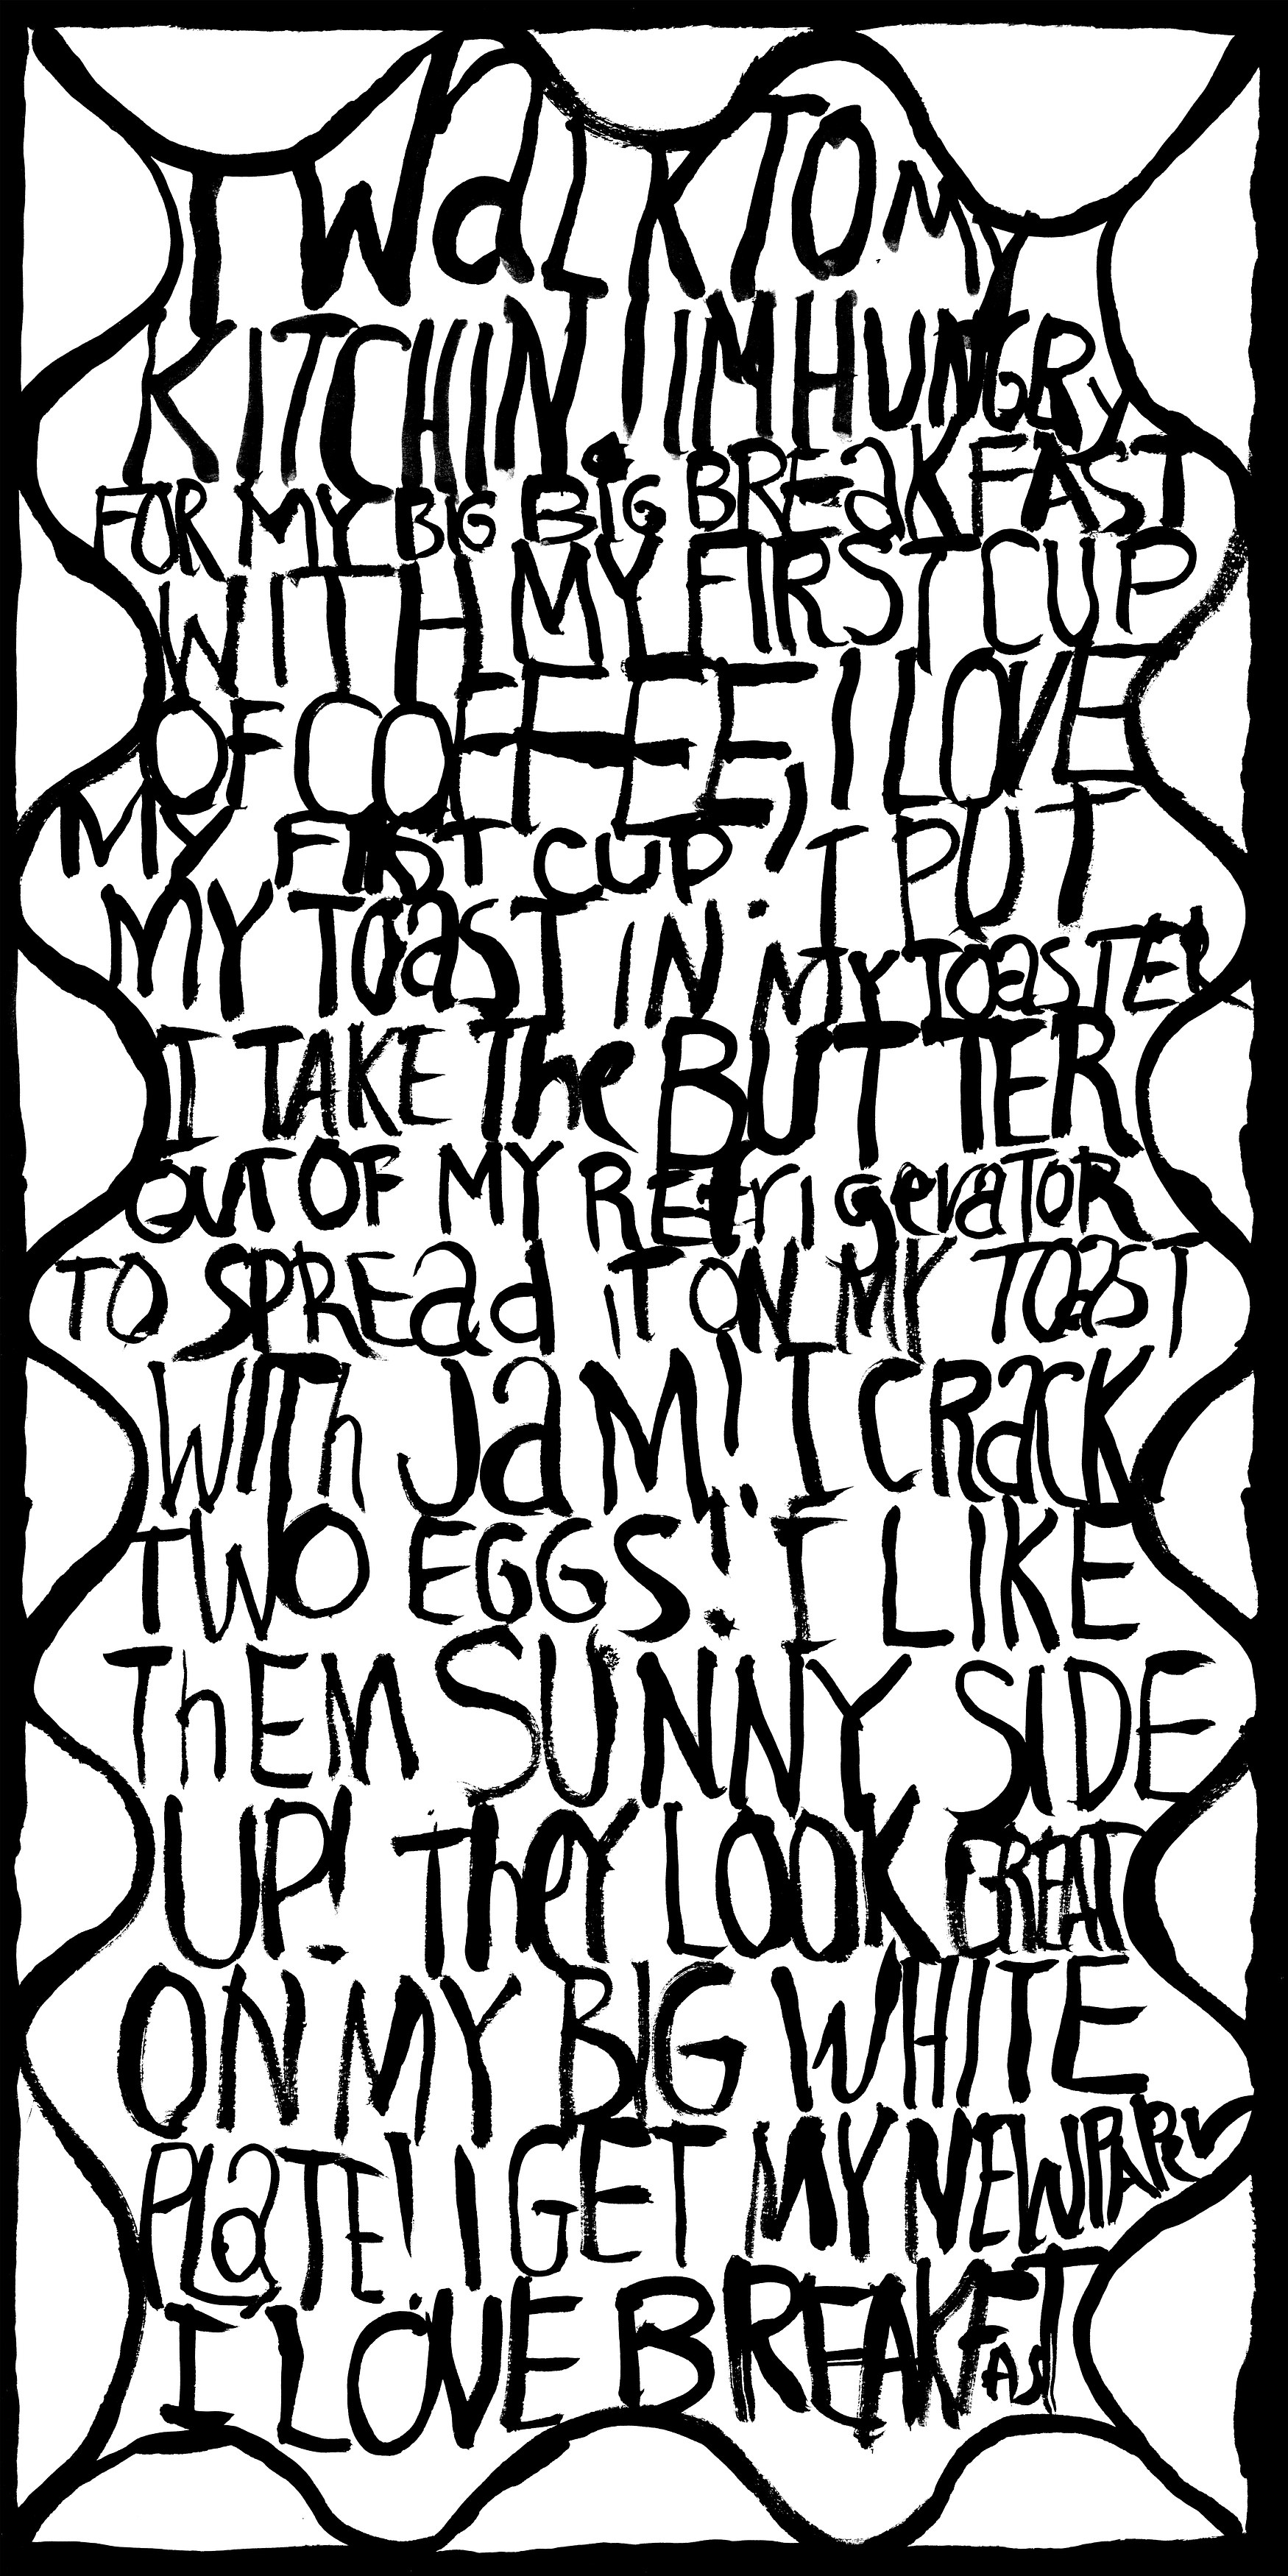 I WaLK TO MY
KITCHIN! IM HUNGRY
FOR MY BIG BIG BREaKFAST
WITH MY FIRST CUP
OF COFFEE, I LOVE
MY FIRST CUP. I PUT
MY TOaST IN MY TOaSTER
I TAKE The BUTTER
OUT OF MY REfrigeraTOR
TO SPREad iT ON MY TOaST
WITh JaM! I CRaCK
TWO EGGS! I LIKE
ThEM SUNNY SIDE
UP! TheY LOOK GREAT
ON MY BIG WHITE
PLaTE! I GET MY NEWPAPER
I LOVE BREAKFAST